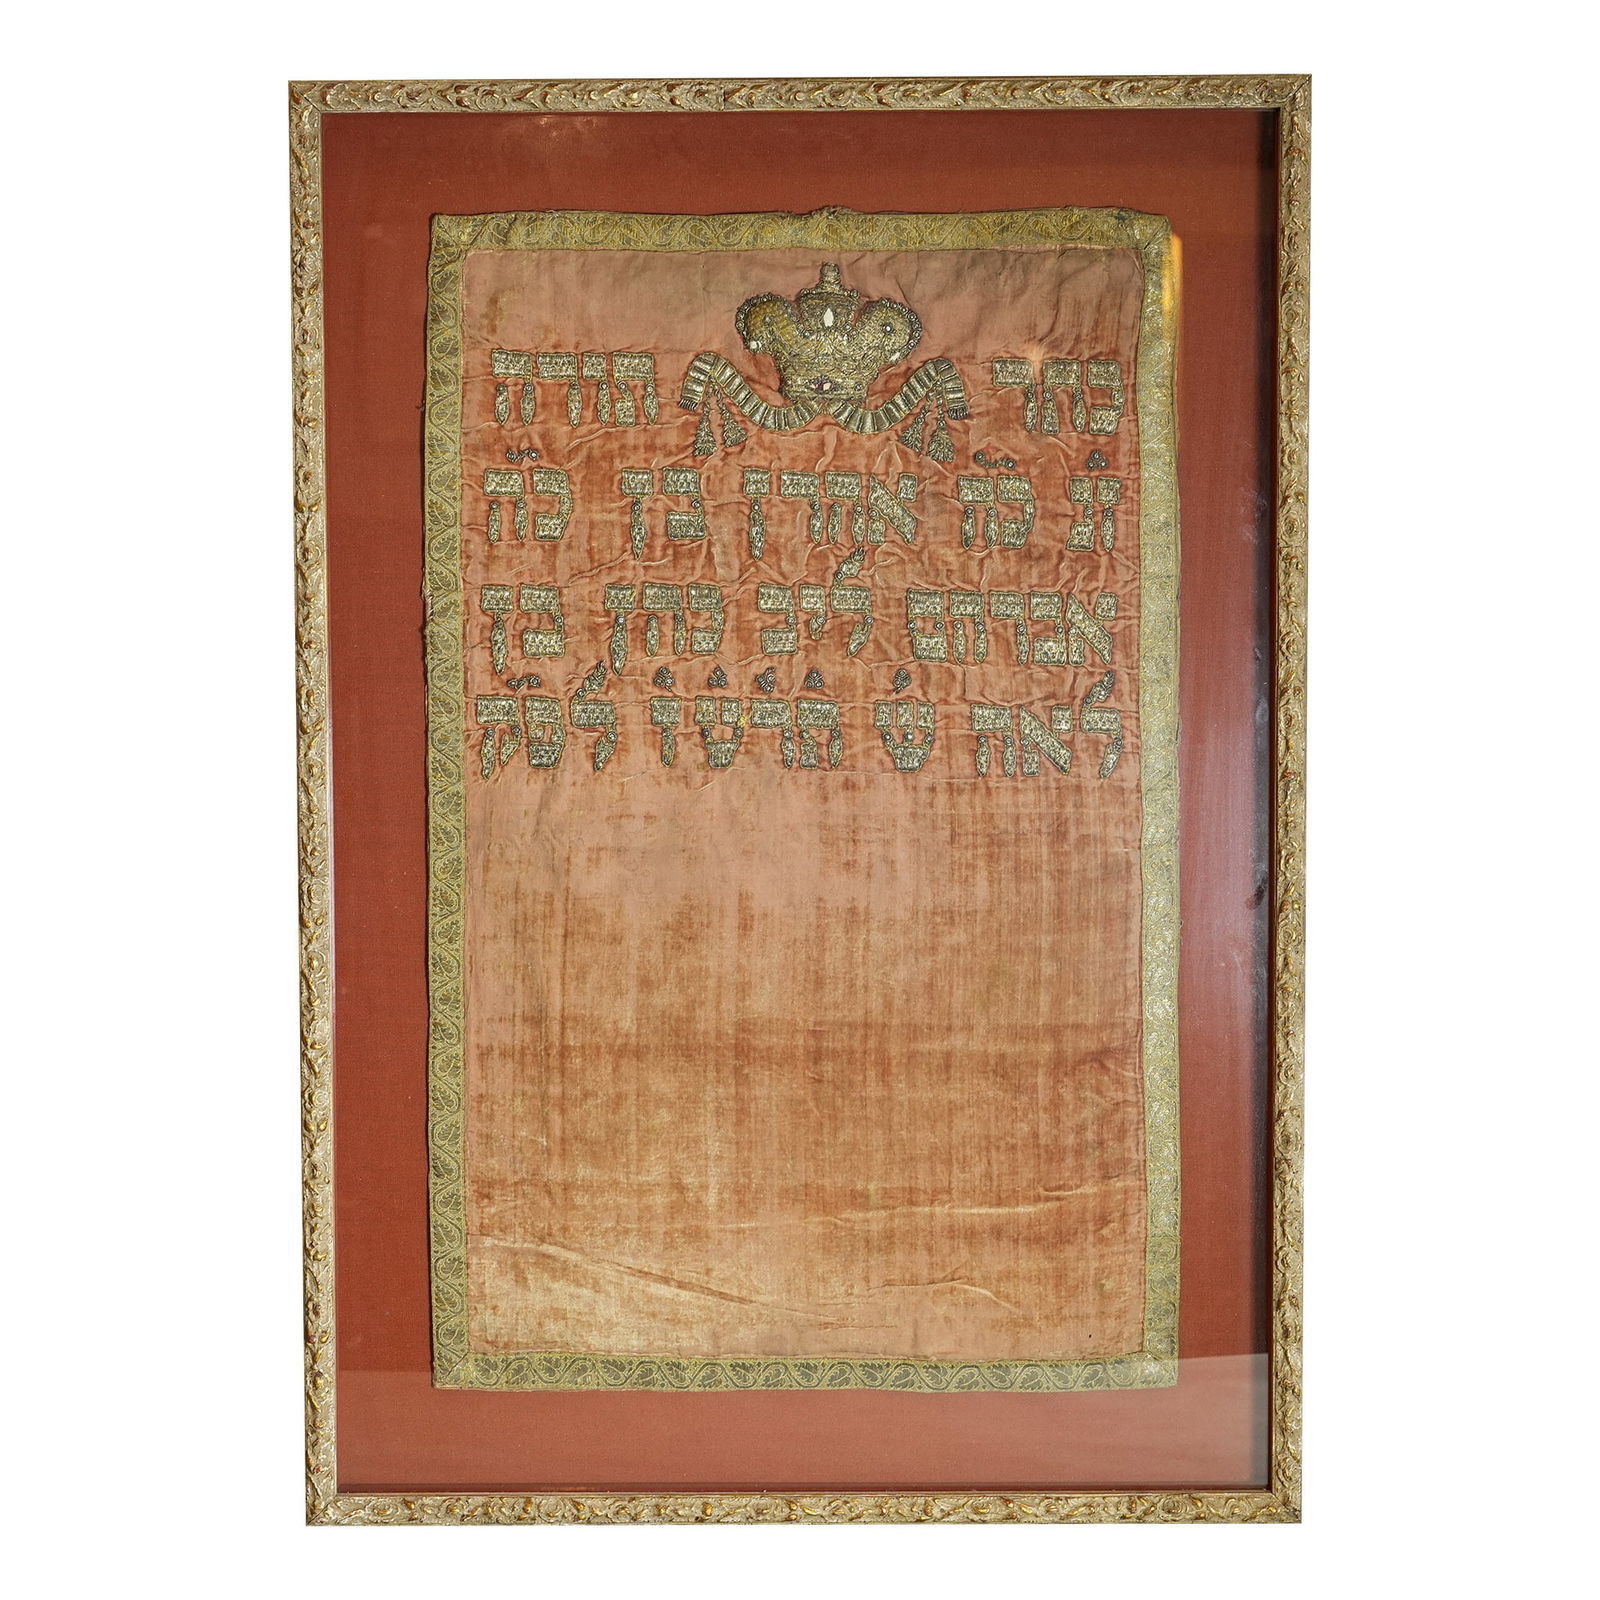 כתר תורה
ז"נ כ"ה אהרן בן כ"ה
אברהם ליב כהן בן
לאה ש' תרטז לפ"ק